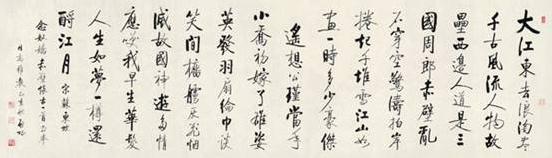 大江東去浪淘尽
千古風流人物故
壘西邊人道是三
國周郎赤壁亂
石穿空驚濤拍岸
捲起千堆雪江山如
畫一時多少豪傑
遙想公瑾當年
小喬初嫁了雄姿
英發羽扇綸巾談
笑間檣艣灰飛烟
滅故國神遊多情
應笑我早生華髮
人生如夢一樽還
酹江月 宋蘇東坡
念奴嬌赤壁懷古一首